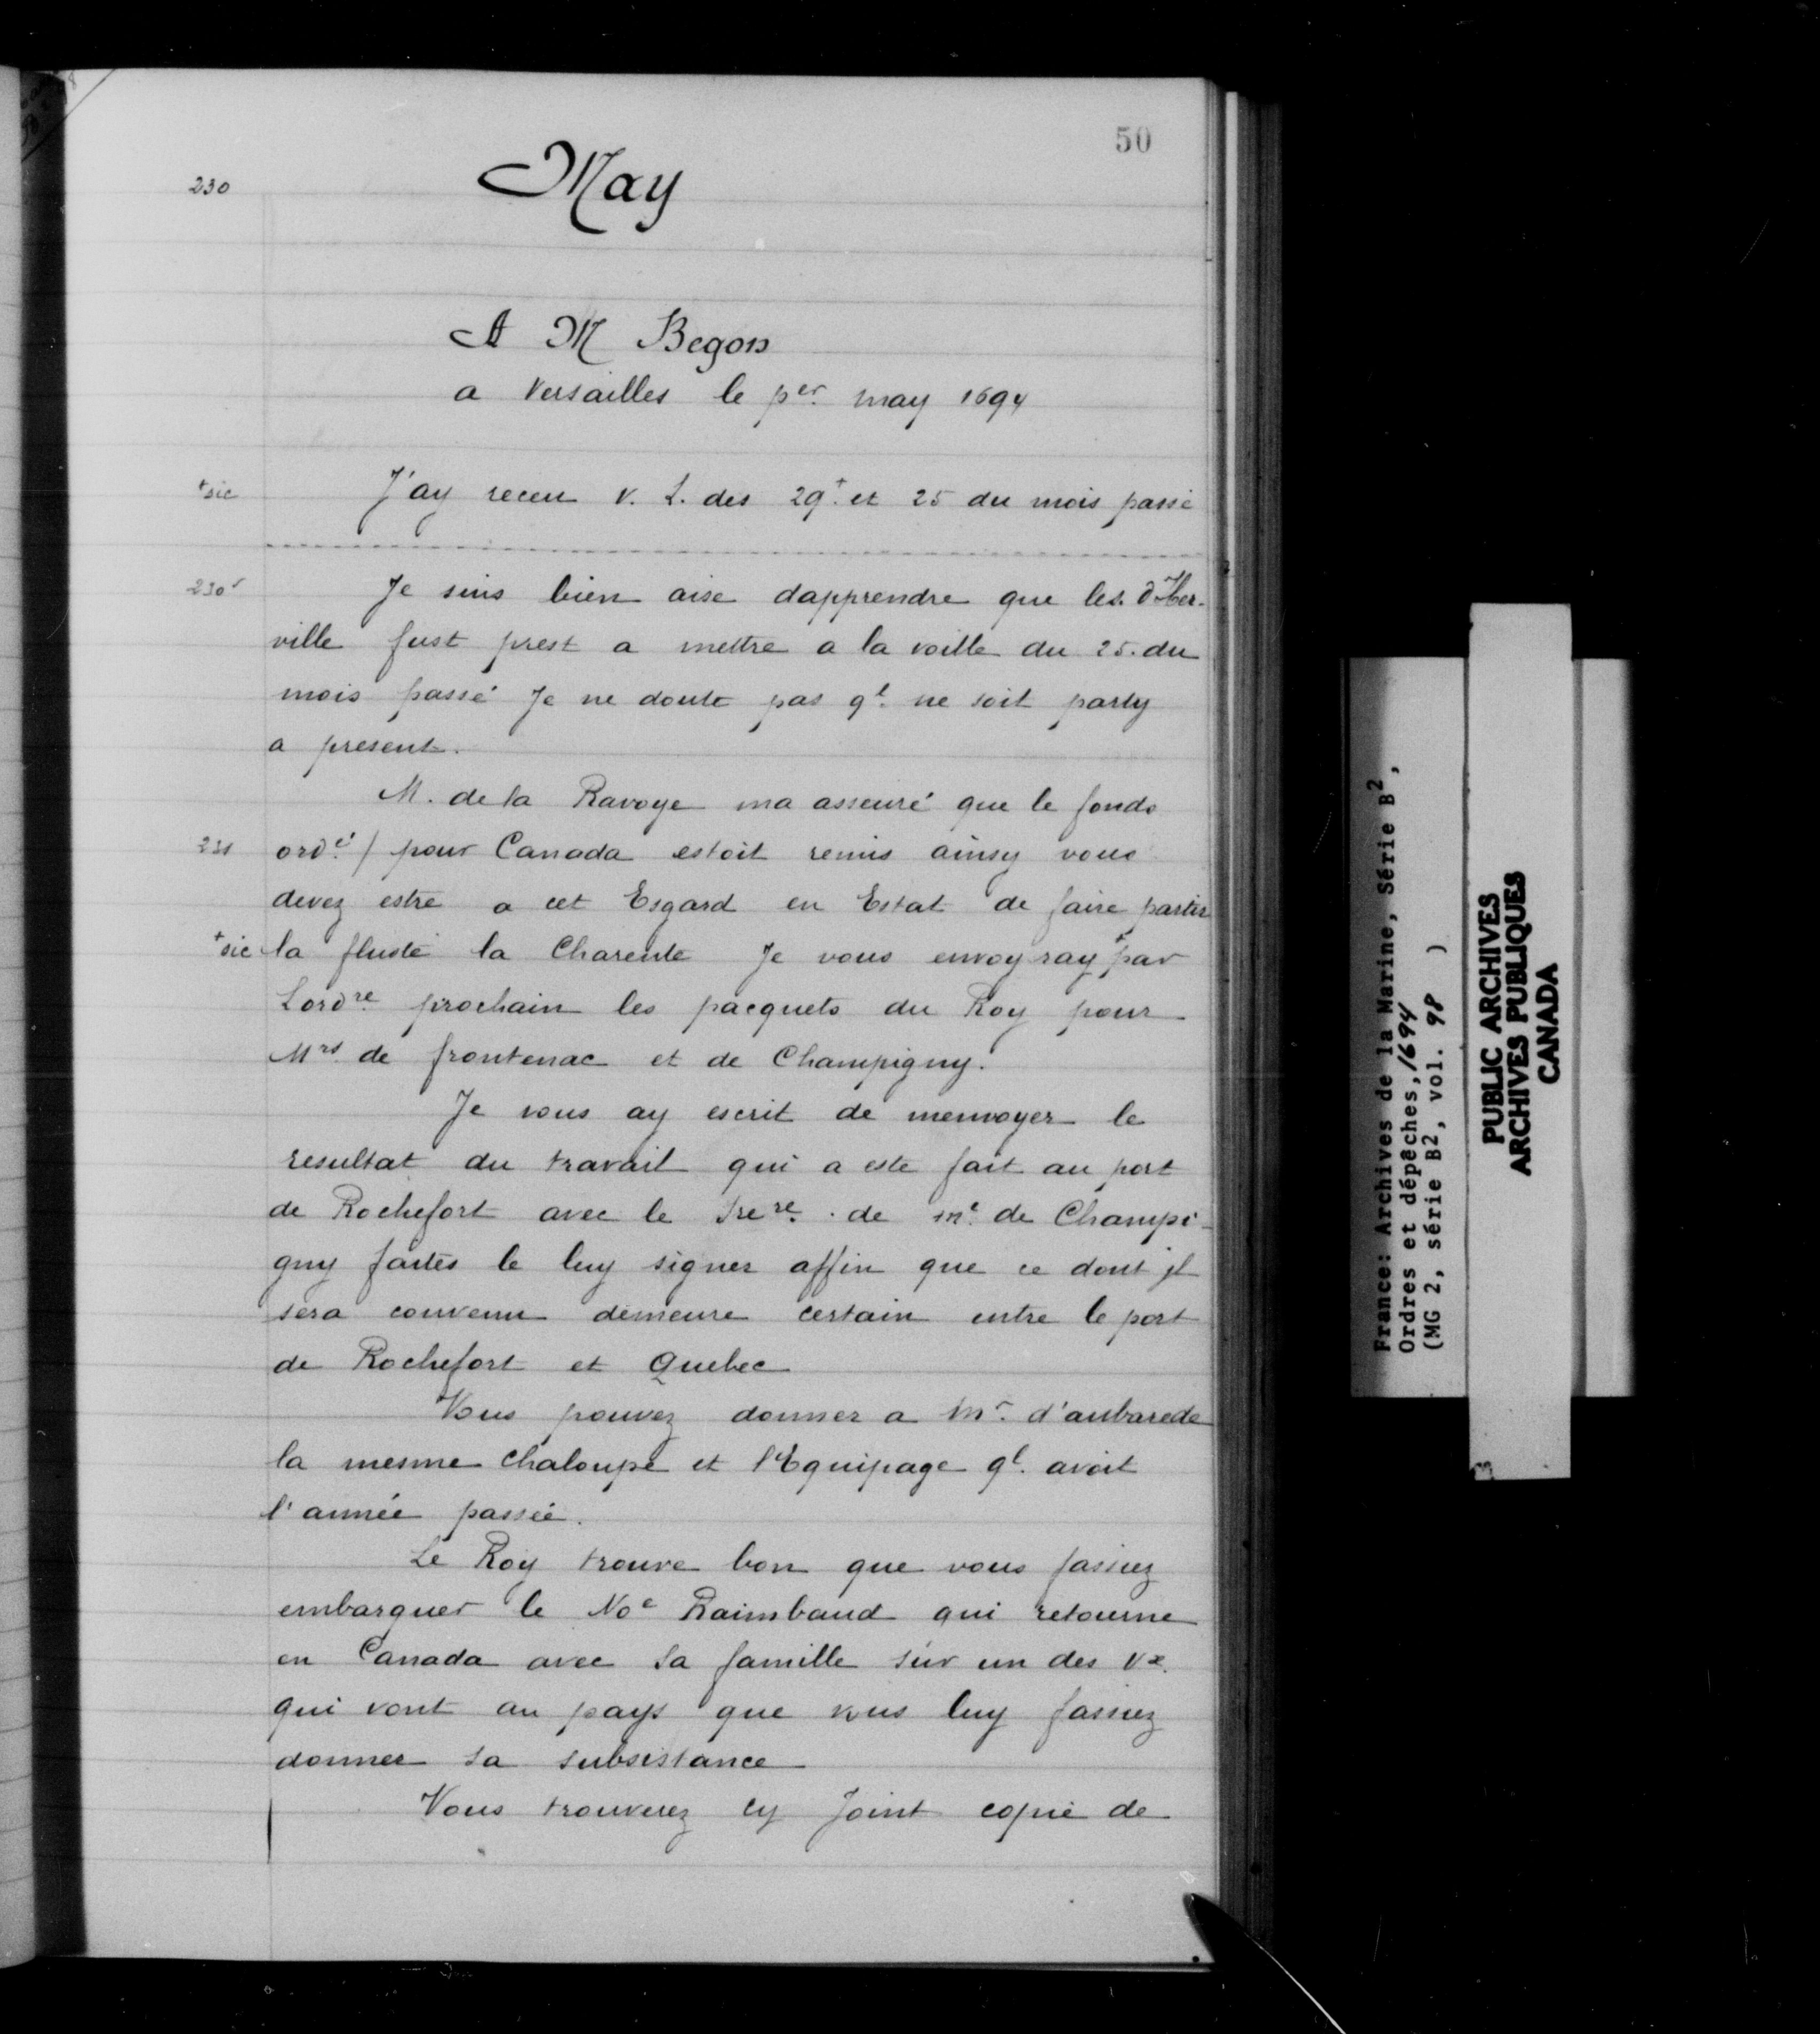 50
230
May
A M Begon
a Versailles le per. may 1694
+sic J'ay receu v. L. des 29.+ et 25 du mois passé
230v Je suis bien aise dapprendre que les. d'Iber-
ville fust prest a mettre a la voille du 25. du
mois passé Je ne doute pas ql. ne soit party
a present.
M. de la Ravoye ma asseuré que le fonds
231 ord.é / pour Canada estoit remis ainsy vous
devez estre a cet Esgard en Estat de faire partir
+sic la fluste la Charente Je vous envoyray+ par
Lordre prochain les pacquets du Roy pour
Mrs. de frontenac et de Champigny.
Je vous ay escrit de menvoyer le
resultat du travail qui a este fait au port
de Rochefort avec le sre.re de mr. de Champi-
gny faites le luy signer affin que ce dont jl
sera convenu demeure certain entre le port
de Rochefort et Quebec
Vous pouvez donner a Mr. d'aubarede
la mesme chaloupe et l'Equipage ql. avoit
l'année passée.
Le Roy trouve bon que vous fassiez
embarquer le Noé Raimbaud qui retourne
en Canada avec sa famille sur un des Vx.
qui vont au pays que vous luy fassiez
donner sa subsistance
Vous trouverez cy Joint copie de
France: Archives de la Marine, Série B2,
Ordres et dépêches, 1694
(MG 2, série B2, vol. 98 )
PUBLIC ARCHIVES
ARCHIVES PUBLIQUES
CANADA